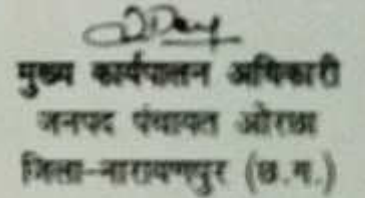 मुख्य कार्यपालन अधिकारी
जनपद पंचायत ओरछा
जिला-नारायणपुर (छ.ग.)